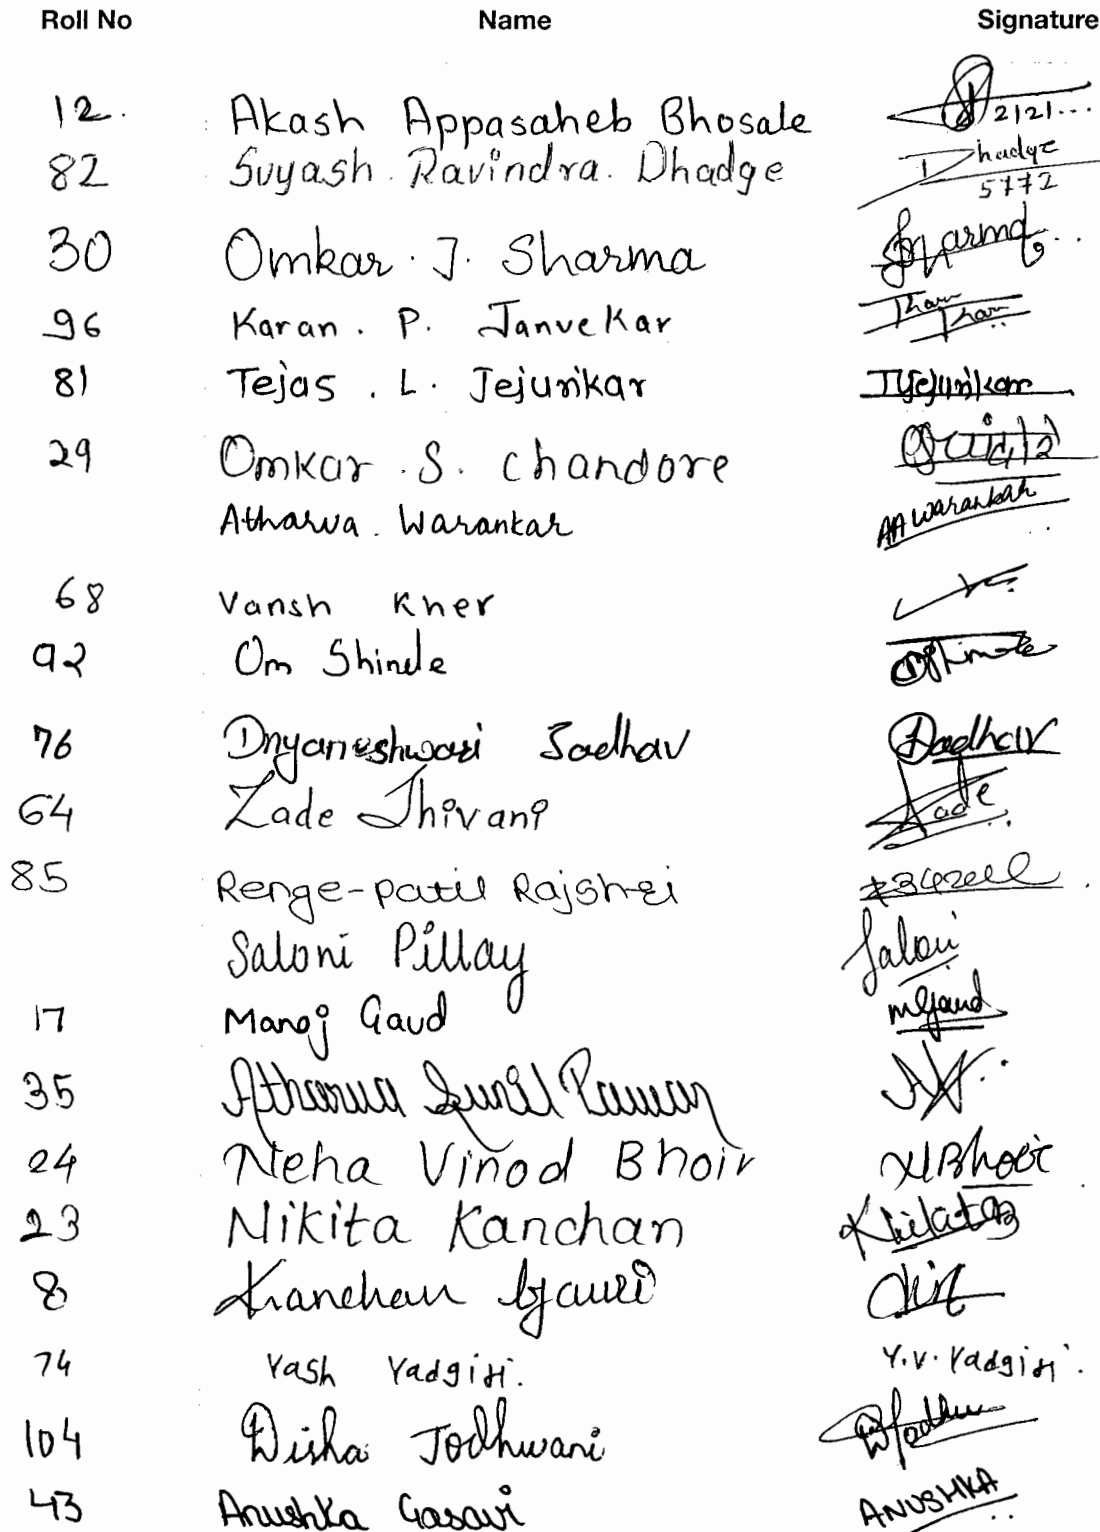 Roll No Name Signature
12. Akash Appasaheb Bhosale 2121...
82 Suyash. Ravindra. Dhadge Dhadge 5772
30 Omkar. J. Sharma Sharma
96 Karan. P. Janvekar
81 Tejas. L. Jejurikar TJejurikar
29 Omkar. S. Chandore
Atharva. Warankar AA Warankar
68 Vansh Kher
92 Om Shinde
76 Dnyaneshwari Jadhav Jadhav
64 Zade Shivani Zade
85 Renge-patil Rajshri
Saloni Pillay Saloni
17 Manoj Gaud mGaud
35 Atharva Sunil Pawar
24 Neha Vinod Bhoir NBhoir
23 Nikita Kanchan
8 Kanchan Gauri
74 Yash Yadgiri. Y.V. Yadgiri.
104 Disha Jodhwani
43 Anushka Gosavi ANUSHKA